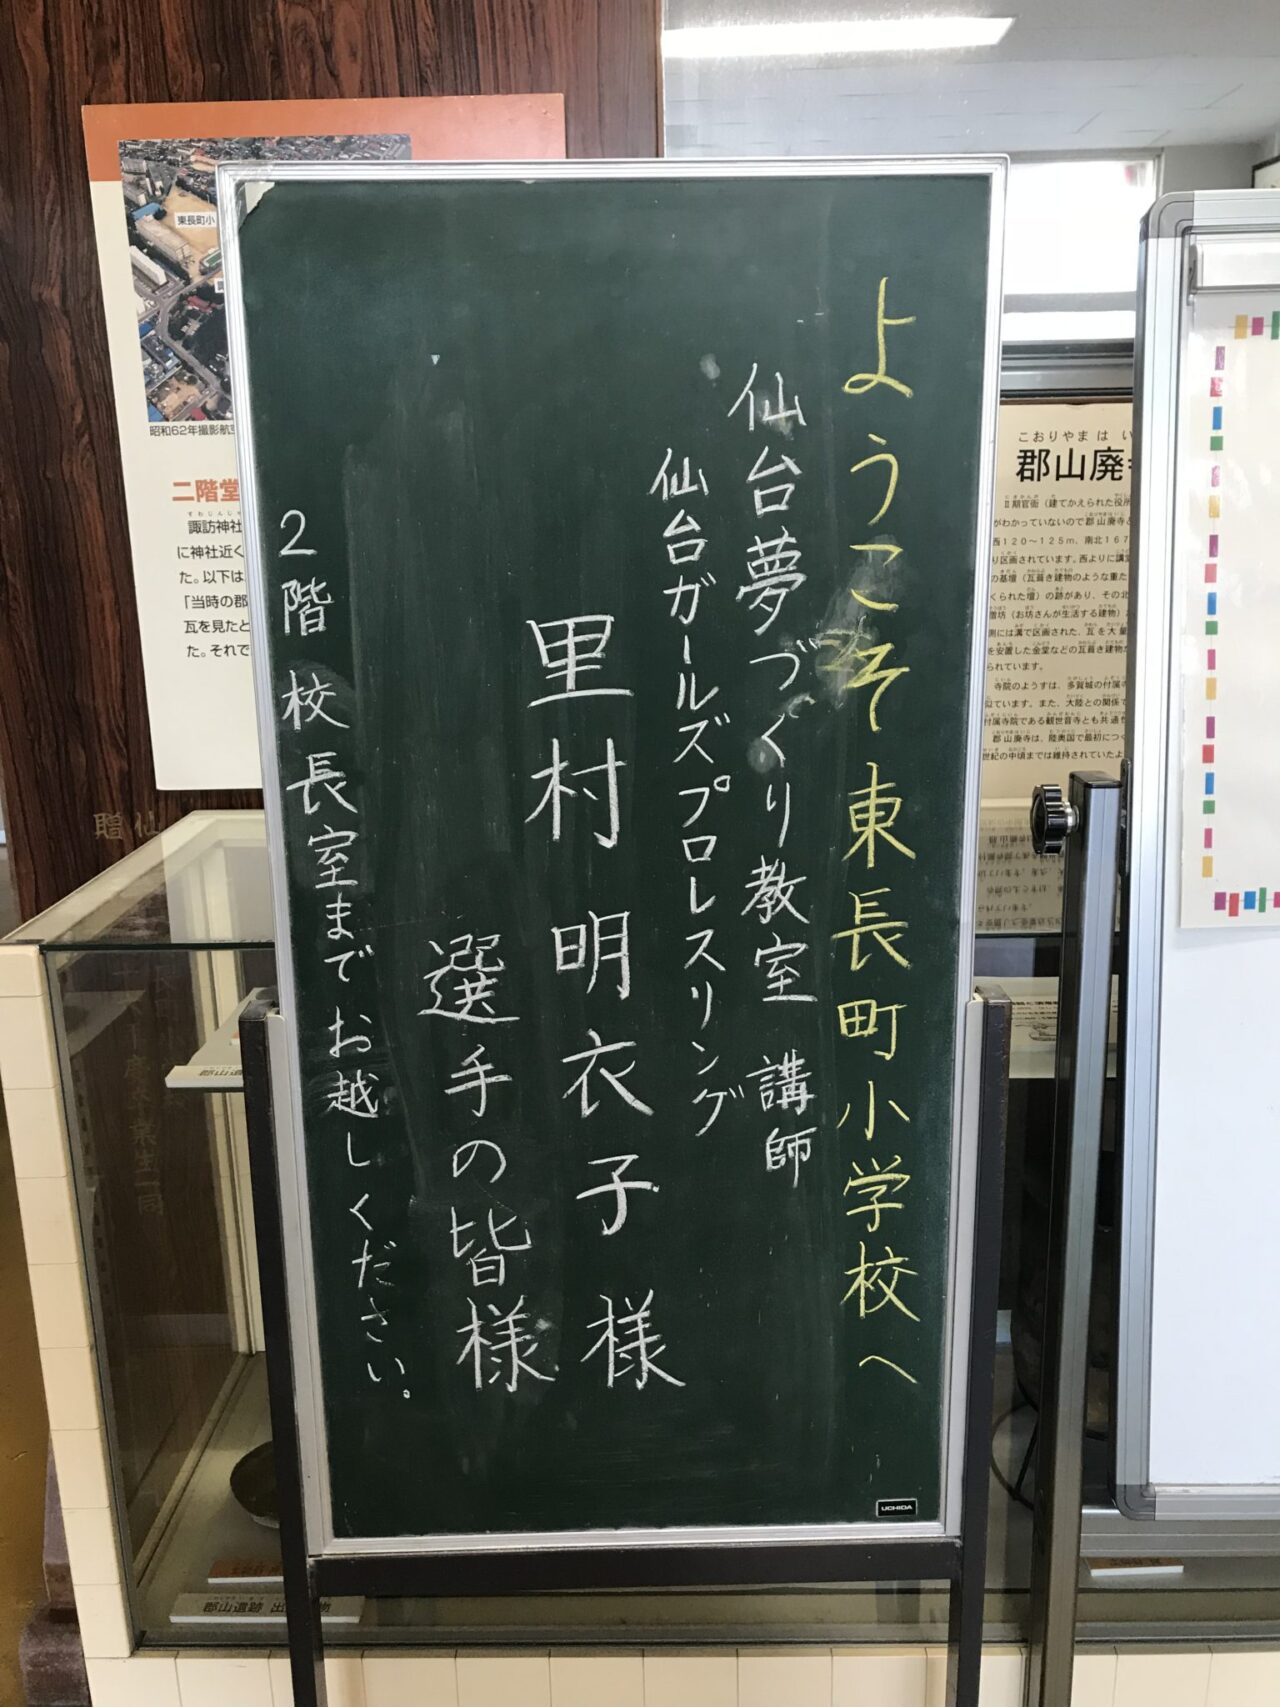 ようこそ東長町小学校へ
仙台夢づくり教室 講師
仙台ガールズプロレスリング
里村明衣子様
選手の皆様
2階校長室までお越しください。
UCHIDA
東長町小
昭和62年撮影航空
二階堂
すわじんじゃ
諏訪神社
に神社近く
た。以下は
「当時の郡
瓦を見たと
た。それで
こおりやまはい
郡山廃
Ⅱ期官衙(建てかえられた役所
がわかっていないので郡山廃寺と
西120〜125m、南北167
り区画されています。西よりに講堂
の基壇(瓦葺き建物のような重た
くられた壇)の跡があり、その北
僧坊(お坊さんが生活する建物)
側には溝で区画された、瓦を大量
を安置した金堂などの瓦葺き建物
られています。
寺院のようすは、多賀城の付属寺
似ています。また、大陸との関係で
付属寺院である観世音寺とも共通
郡山廃寺は、陸奥国で最初につく
世紀の中頃までは維持されていたよ
贈 仙
業生一同
郡山遺
郡山遺跡 出
物